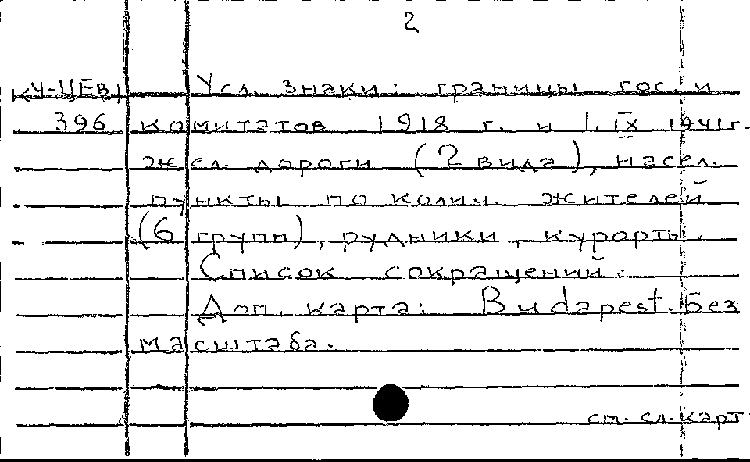 2
КЧ-ЦЕВ1 Усл. знаки: границы гос. и
396 комитатов 1918 г. и 1.IX 1941г.
жел. дороги (2 вида), насел.
пункты по колич. жителей
(6 групп), рудники, курорты.
Список сокращений.
Доп. карта: Budapest. Без
масштаба.
см. сл. карт